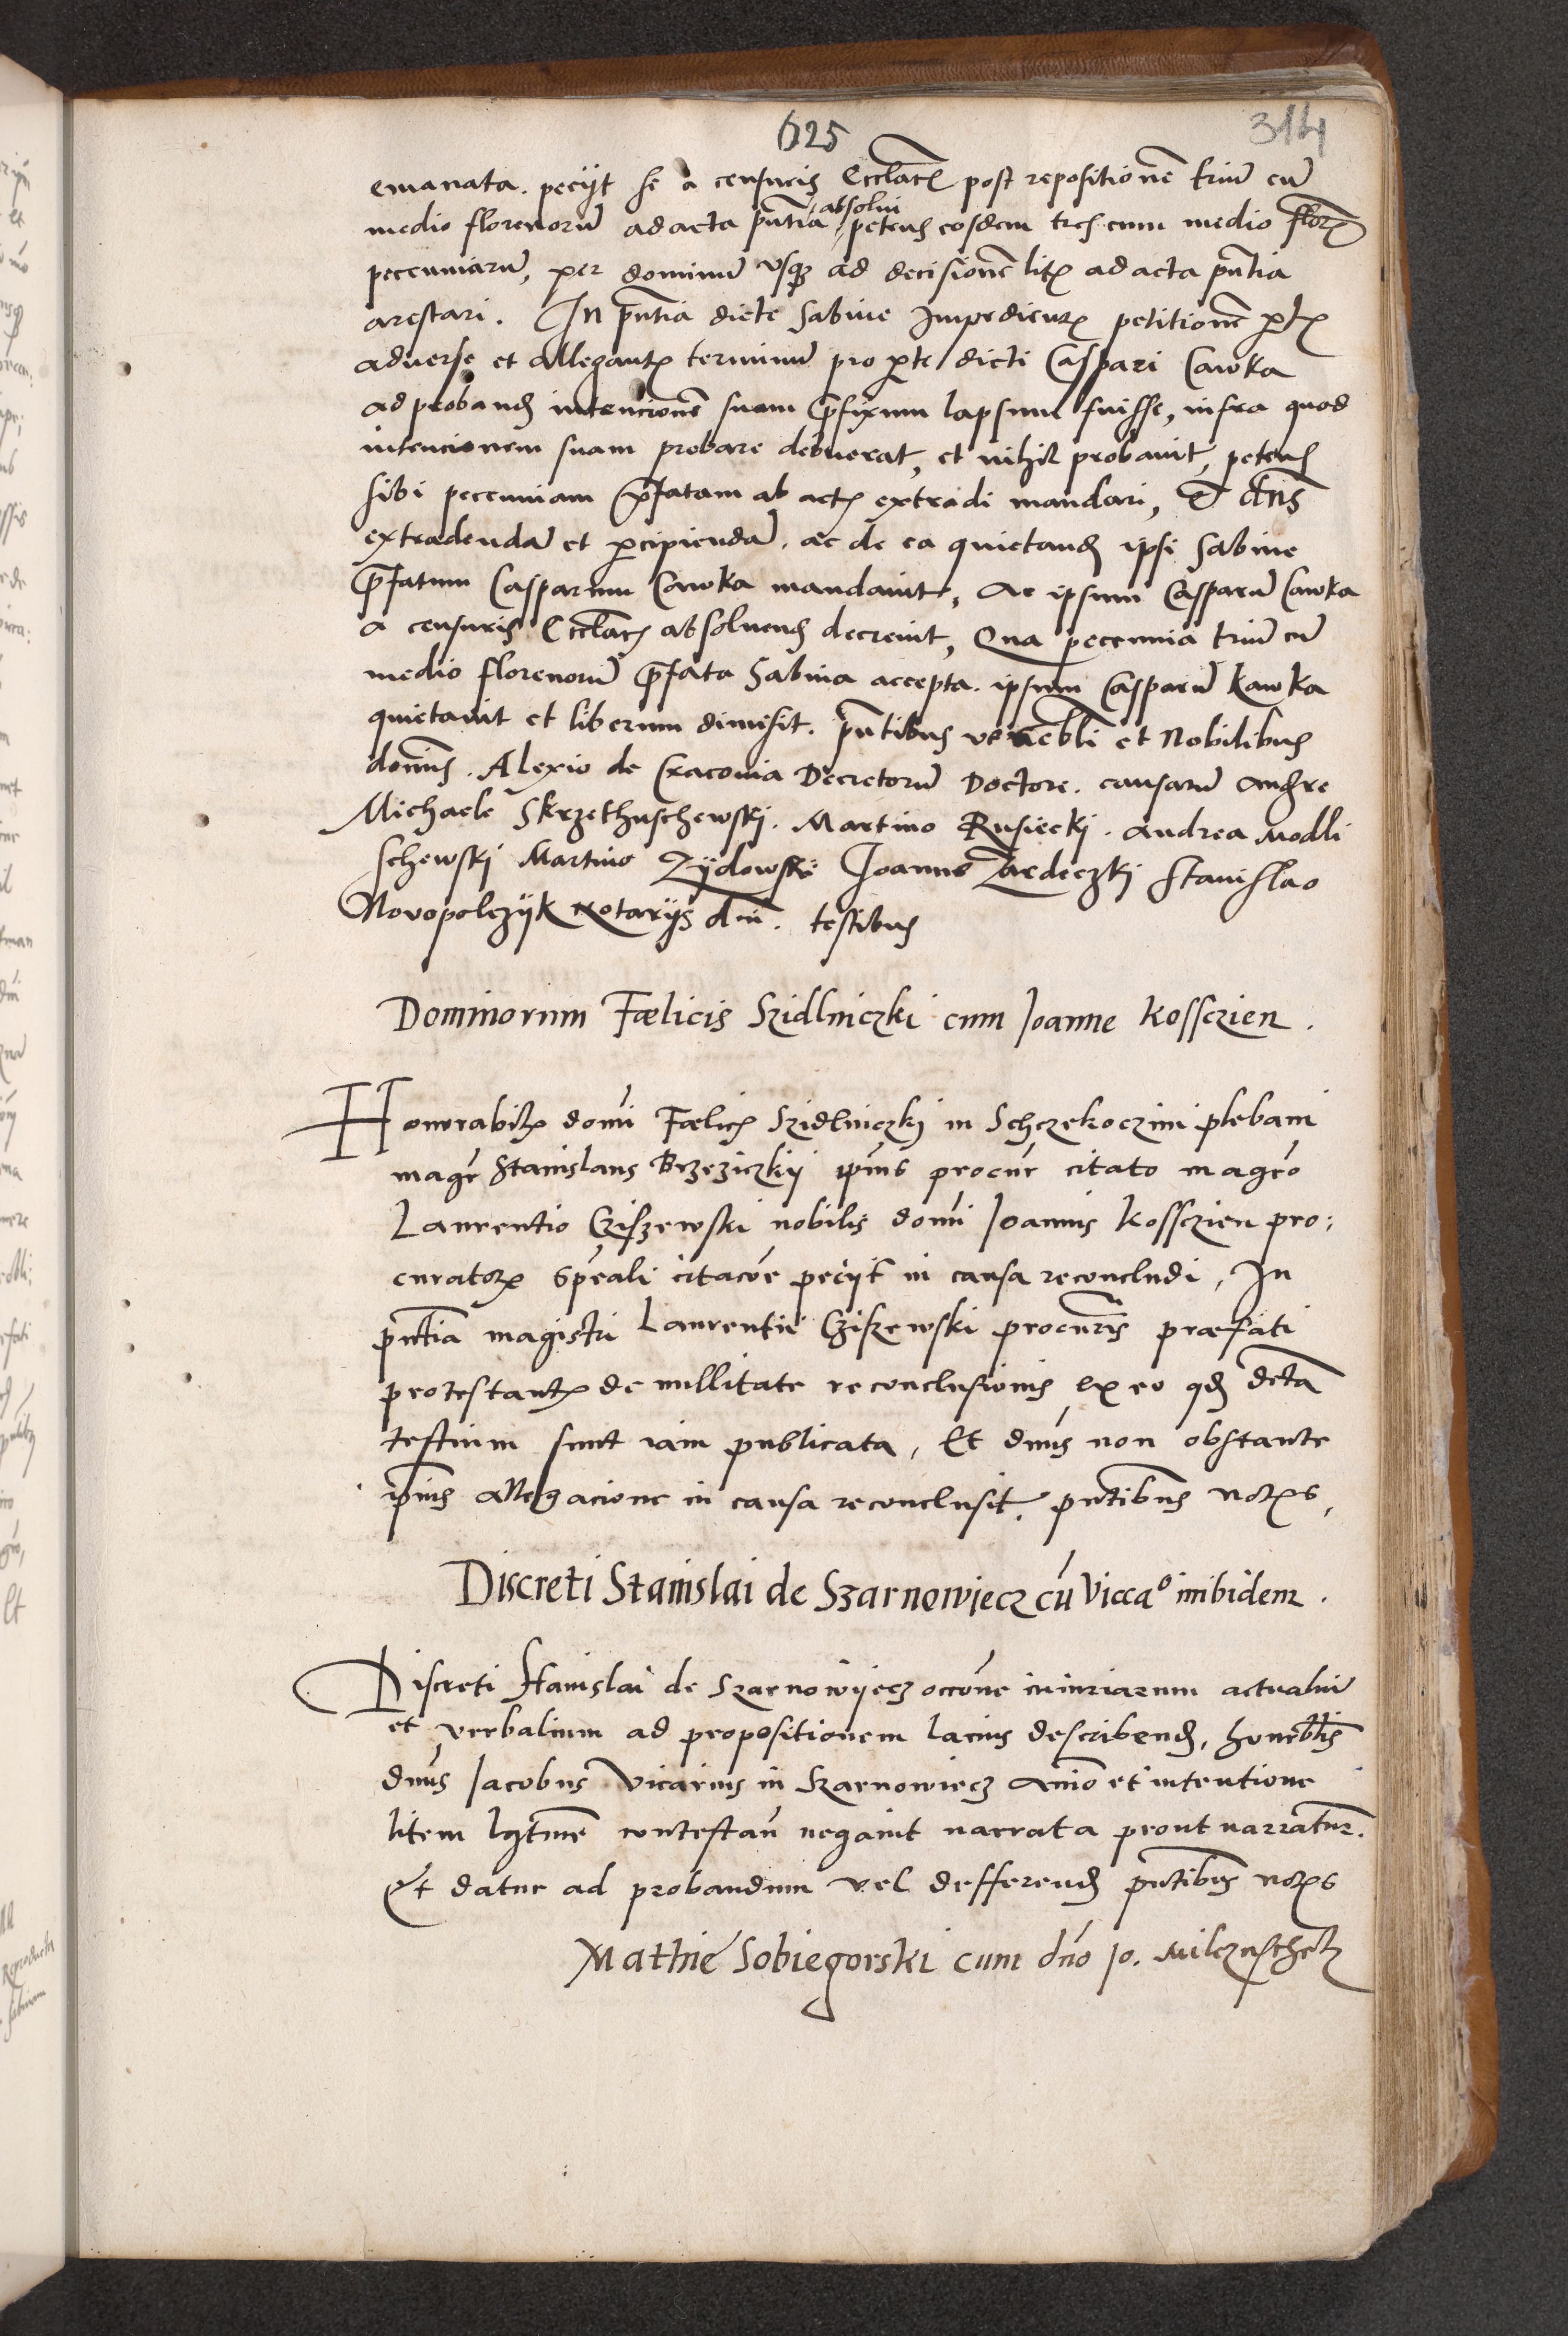 625
314
emanata. peciit se a censuris Ecclāeˢ post repositionē triū cū
medio florenorū ad acta pn̄tia absolui petens eosdem tres cum medio florʒ
peccuniarū, per dominū vsqʒ ad decisionē litꝭ ad acta pn̄tia
arestari. In pn̄tia dicte Sabine Impedientꝭ petitionē ꝑtꝭ
aduerse et allegantꝭ terminū pro ꝑte dicti Caspari Cawka
ad proband intencionē suam p̄fixum lapsum fuisse, infra quod
intencionem suam probare debuerat, et nihil probauit, petens
sibi peccuniam p̄fatam ab actꝭ extradi mandari, Et dn̄s
extradendā et ꝑcipiendā. ac de ea quietand ipsi Sabine
p̄fatum Casparum Cawka mandauit, Ac ipsum Casparū Cawka
a censuris Ecclāeˢ absoluend decreuit, Qua peccunia triū cū
medio florenorū p̄fata Sabina accepta. ipsum Casparū Kawka
quietauit et liberum dimisit. pn̄tibus venebli et Nobilibus
domīs. Alexio de Cracouia Decretorū Doctore. causarū audre
Michaele Skrzethuschewskj. Martino Rusieckj. Andrea Modli
schewskj Martino Zydowskj Joanne Zardeczkj Stanislao
Novopolczyk Notarijs dn̄i. testibus
Dominorum Fælicis Szidlniczki cum Joanne Kossczien.
Honorabilꝭ domī Fælicꝭ Szidlniczkj in Schzekoczini plebani
magr Stanislaus Brzeziczkij ip̄ius procur̄ citato magr̄o
Laurentio Cziszewski nobilis domī Joannis Kossczien pro:
curatorꝭ sp̄eali citacōe peciit in causa reconcludi, In
pn̄tia magistri Laurentii Cziszewski procur̄is præfati
protestantꝭ de nullitate reconclusionis ex eo qd dicta
testium sunt iam publicata, Et dn̄us non obstante
ip̄ius allegacione in causa reconclusit, pn̄tibus notꝭs,
Discreti Stanislai de Szarnowiecz cū Viccaº inibidem.
Discreti Stanislai de Szarnowijecz occōne iniuriarum actualiū
et verbalium ad propositionem lacius describend, honrblis
dn̄us Jacobus Vicarius in Szarnowiecz animo et intentione
litem lgtme contestan̄ negauit narrata prout narrātur.
Et datur ad probandum vel defferend pn̄tibus notꝭs
Mathie Sobiegorski cum dn̄o Jo.